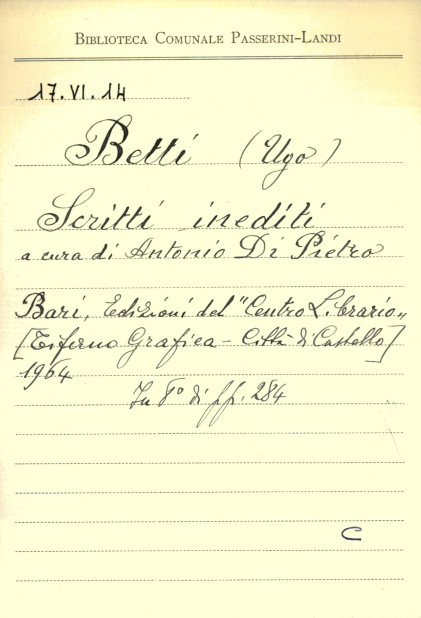 BIBLIOTECA COMUNALE PASSERINI-LANDI
17.VI.14
Betti (Ugo)
Scritti inediti
a cura di Antonio Di Pietro
Bari, Edizioni del "Centro Librario„
[Tiferno Grafica - Città di Castello]
1964
In 8° di pp. 284
C